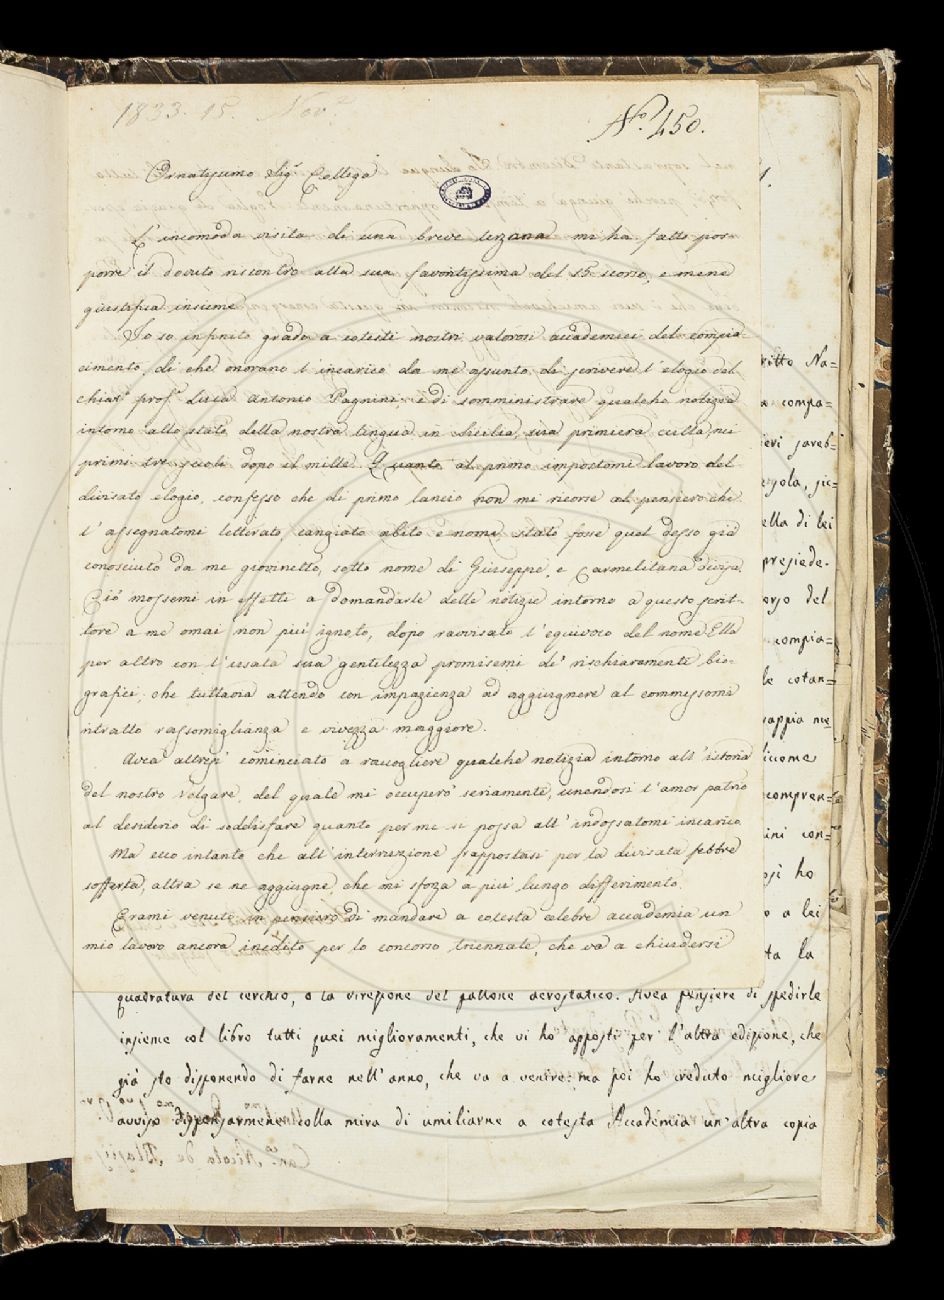 1833. 15. Nov.e
N.o 450.
Ornatissimo Sig.r Collega
L'incomoda visita di una breve terzana mi ha fatto pos-
porre il dovuto riscontro alla sua favoritissima del 15 scorso, e mene
giustifica insieme.
Io so infinito grado a cotesti nostri valorosi accademici del compia-
cimento, di che onorano l'incarico da me assunto di scrivere l'elogio del
chiar.o prof.r Luca Antonio Pagnini e di somministrare qualche notizia
intorno allo stato della nostra lingua in Sicilia, sua primiera culla, nei
primi tre secoli dopo il mille. Quanto al primo impostomi lavoro del
divisato elogio, confesso che di primo lancio non mi ricorse al pensiero che
l'assegnatomi letterato, cangiato abito e nome stato fosse quel desso già
conosciuto da me giovinetto, sotto nome di Giuseppe, e Carmelitana divisa
Ciò mossemi in effetti a domandarle delle notizie intorno a questo scrit-
tore a me omai non più ignoto, dopo ravvisato l'equivoco del nome. Ella
per altro con l'usata sua gentilezza promisemi de' rischiaramenti bio-
grafici, che tuttavia attendo con impazienza ad aggiugnere al commessomi
ritratto rassomiglianza e vivezza maggiore.
Avea altresì cominciato a raccogliere qualche notizia intorno all'istoria
del nostro volgare, del quale mi occuperò seriamente, unendosi l'amor patrio
al desiderio di soddisfare quanto per me si possa all'indossatomi incarico
Ma ecco intanto che all'interruzione frappostasi per la divisata febbre
sofferta, altra se ne aggiugne, che mi sforza a più lungo differimento.
Erami venuto in pensiero di mandare a cotesta celebre accademia un
mio lavoro ancora inedito per lo concorso triennale, che va a chiudersi
ritto Na=
compa=
eri sareb=
ella di lei
presiede.
del
compia=
le cotan=
rappia ne
icome
compren=
ini con=
ho
o a lei
ta la
quadratura del cerchio, o la direzione del pallone aerostatico. Avea pensiere di spedirle
insieme col libro tutti quei miglioramenti, che vi ho apposti per l'altra edizione, che
già sto disponendo di farne nell'anno, che va a venire: ma poi ho creduto migliore
avviso dispensarmene colla mira di umiliarne a cotesta Accademia un'altra copia